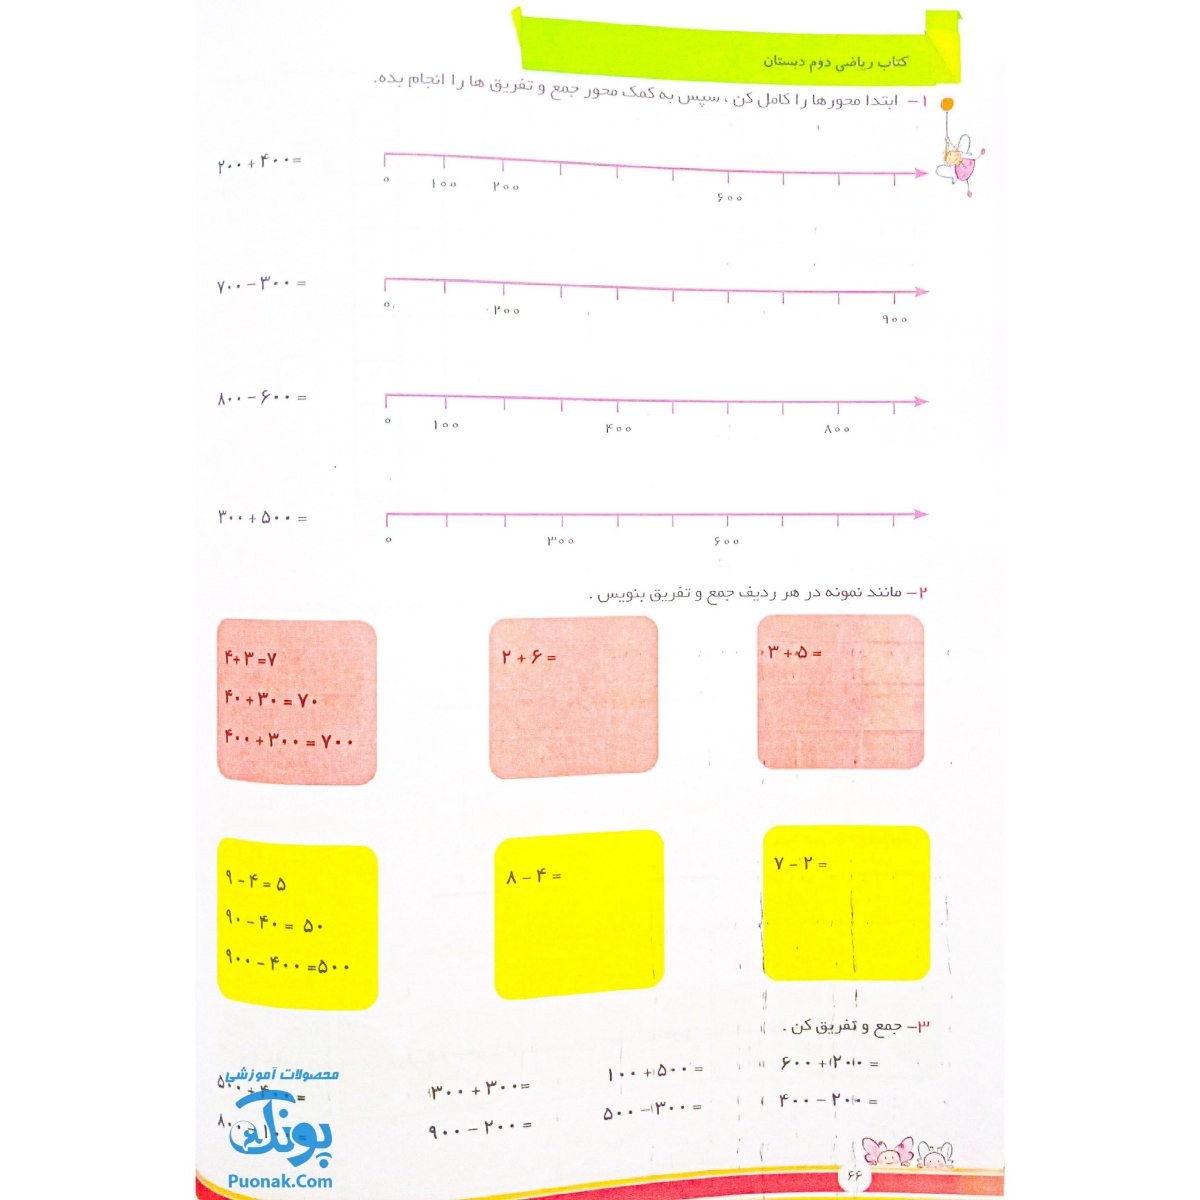 کتاب ریاضی دوم دبستان
۱- ابتدا محورها را کامل کن ، سپس به کمک محور جمع و تفریق ها را انجام بده.
۲۰۰ + ۴۰۰ =
۰ ۱۰۰ ۲۰۰ ۶۰۰
۷۰۰ - ۳۰۰ =
۰ ۲۰۰ ۹۰۰
۸۰۰ - ۶۰۰ =
۰ ۱۰۰ ۴۰۰ ۸۰۰
۳۰۰ + ۵۰۰ =
۰ ۳۰۰ ۶۰۰
۲- مانند نمونه در هر ردیف جمع و تفریق بنویس .
۴+۳=۷
۴۰+۳۰=۷۰
۴۰۰+۳۰۰=۷۰۰
۲+۶=
۳+۵=
۹-۴=۵
۹۰-۴۰=۵۰
۹۰۰-۴۰۰=۵۰۰
۸-۴=
۷-۲=
۳- جمع و تفریق کن .
۶۰۰+۲۰۰=
۱۰۰+۵۰۰=
۳۰۰+۳۰۰=
۵۰۰+۴۰۰=
۴۰۰-۲۰۰=
۵۰۰-۳۰۰=
۹۰۰-۲۰۰=
محصولات آموزشی
پونک
Puonak.Com
۶۶